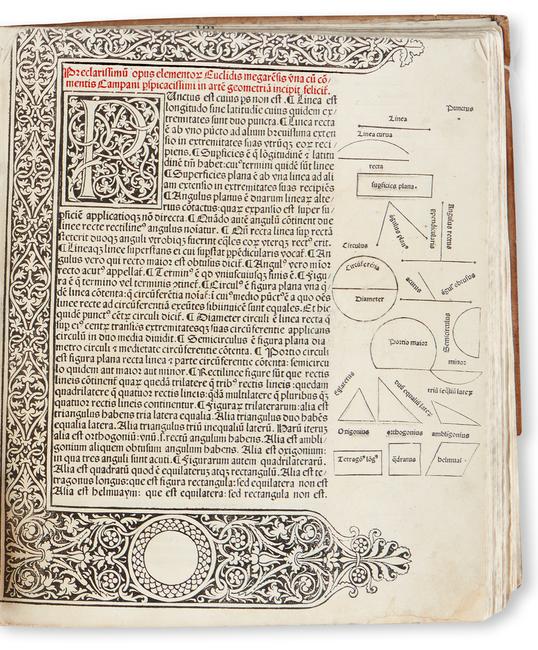 Preclarissimũ opus elementoꝝ Euclidis megarẽsis vna cũ cõ⸗
mentis Campani pspicacissimi in artẽ geometriã incipit felicit̃.
PUnctus est cuius ps non est. ¶ Linea est
longitudo sine latitudine cuius quidem ex⸗
tremitates sunt duo puncta. ¶ Linea recta
ẽ ab vno pũcto ad alium breuissima exten
sio in extremitates suas vtrũqꝫ eoꝝ reci
piens. ¶ Supficies ẽ q̃ lõgitudinẽ ⁊ latitu
dinẽ tm̃ habet: cuiꝰ termini quidẽ sũt linee
¶ Superficies plana ẽ ab vna linea ad ali
am extensio in extremitates suas recipiẽs
¶ Angulus planus ẽ duarum lineaꝝ alte⸗
rius cõtactus: quaꝝ expansio est super su⸗
pficiẽ applicatioqꝫ nõ directa. ¶ Quãdo autẽ angulũ cõtinent due
linee recte rectilineꝰ angulus noĩatur. ¶ Qñ recta linea sup rectã
steterit duoqꝫ anguli vtrobiqꝫ fuerint eq̃les eoꝝ vterqꝫ rectꝰ erit.
¶ Lineaqꝫ linee superstans ei cui supstat ppẽdicularis vocat̃. ¶ An
gulus vero qui recto maior est obtusus dicit̃. ¶ Angulꝰ vero mior
recto acutꝰ appellat̃. ¶ Terminꝰ ẽ qd̃ vniuscuiusqꝫ finis ẽ. ¶ Figu⸗
ra ẽ q̃ termino vel terminis ↄtinet̃. ¶ Circulꝰ ẽ figura plana vna q̃⸗
dẽ linea cõtenta: q̃ circũferẽtia noĩat̃: ĩ cuiꝰ medio pũctꝰ ẽ a quo oẽs
linee recte ad circũferẽtiã exeũtes sibiinuicẽ sunt equales. Et hic
quidẽ punctꝰ cẽtꝝ circuli dicit̃. ¶ Diameter circuli ẽ linea recta q̃
sup eiꝰ centꝝ transiẽs extremitatesqꝫ suas circũferẽtie applicans
circulũ in duo media diuidit. ¶ Semicirculus ẽ figura plana dia
metro circuli ⁊ medietate circũferẽtie cõtenta. ¶ Portio circuli
est figura plana recta linea ⁊ parte circũferẽtie cõtẽta: semicircu
lo quidem aut maior aut minor. ¶ Rectilinee figure sũt que rectis
lineis cõtinent̃ quaꝝ quedã trilatere q̃ tribꝰ rectis lineis: quedam
quadrilatere q̃ quatuor rectis lineis: qdã multilatere q̃ pluribus q̃ꝫ
quatuor rectis lineis continentur. ¶ Figuraꝝ trilateraꝝ: alia est
triangulus habens tria latera equalia. Alia triangulus duo habẽs
equalia latera. Alia triangulus triũ inequaliũ laterũ. Haꝝ iterũ
alia est orthogoniũ: vnũ .s. rectũ angulum habens. Alia est ambli⸗
gonium aliquem obtusum angulum habens. Alia est origonium:
in qua tres anguli sunt acuti. ¶ Figurarum autem quadrilateraꝝ
Alia est quadratũ quod ẽ equilaterũ atqꝫ rectangulũ. Alia est te⸗
tragonus longus: que est figura rectangula: sed equilatera non est
Alia est helmuaym: que est equilatera: sed rectangula non est.
Punctus
Linea
Linea curua
recta
supficies plana.
ãgulus planꝰ
ppẽdicularis
Angulus rectus
Circulus
Circũferẽtia
Diameter
acutus
ãguꝰ obtusus
Portio maior
Semicirculus
minor
Origonius
orthogonius
ambligonius
Tetragonꝰ lõgꝰ
q̃dratus
helmuaī